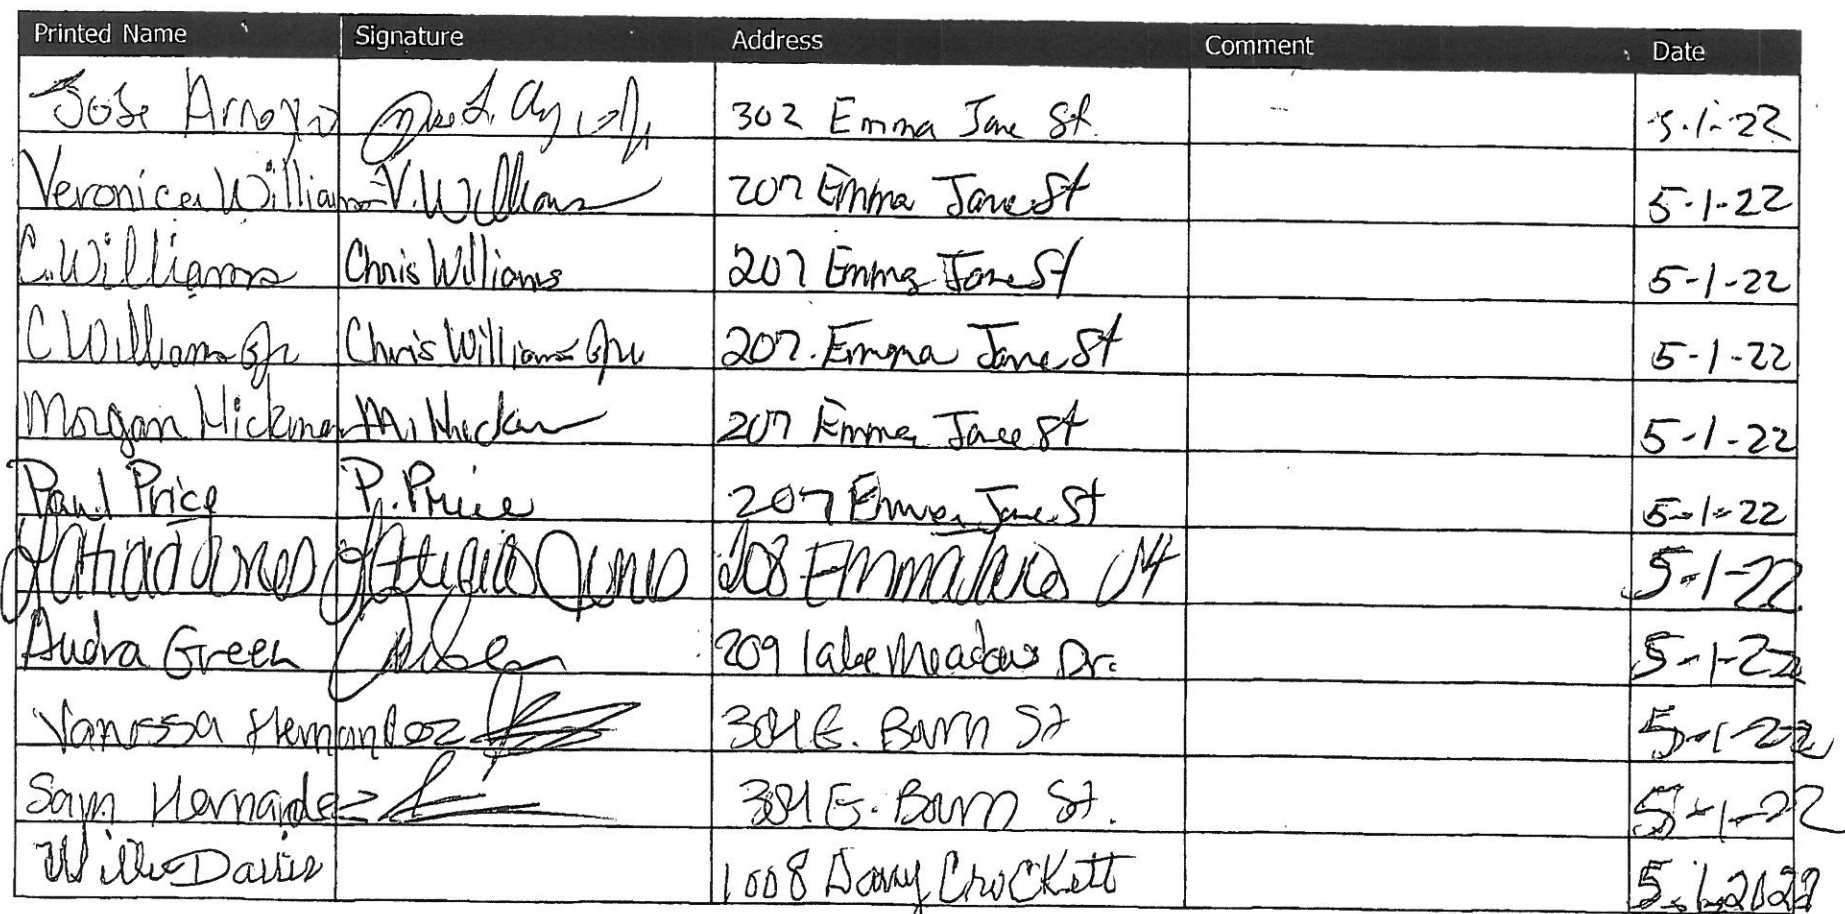 Printed Name Signature Address Comment Date
Jose Arroyo 302 Emma Jane St. 5-1-22
Veronica Williams V. Williams 207 Emma Jane St 5-1-22
C. Williams Chris Williams 207 Emma Jane St 5-1-22
C Williams Jr Chris Williams Jr 207 Emma Jane St 5-1-22
Morgan Hickman 207 Emma Jane St 5-1-22
Paul Price P. Price 207 Emma Jane St 5-1-22
Jones Jones 208 Emma 5-1-22
Audra Green 209 Lake Meadows Dr. 5-1-22
Vanessa Hernandez E. Barn St 5-1-22
Sam Hernandez E. Barn St. 5-1-22
Davis 1008 Davy Crockett 5.1.2022